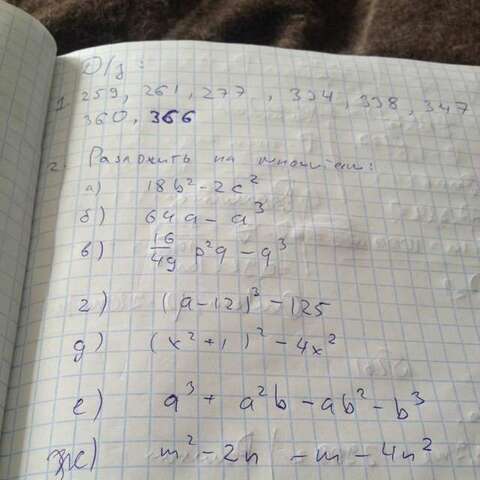 D/з:
1. 259, 261, 277, 334, 338, 347
360, 366
2. Разложить на множители:
а) 18b² - 2c²
б) 64a - a³
в) 16/49 p²q - q³
г) (a-12)³ - 125
д) (x²+1)² - 4x²
е) a³ + a²b - ab² - b³
ж) m² - 2n - m - 4n²